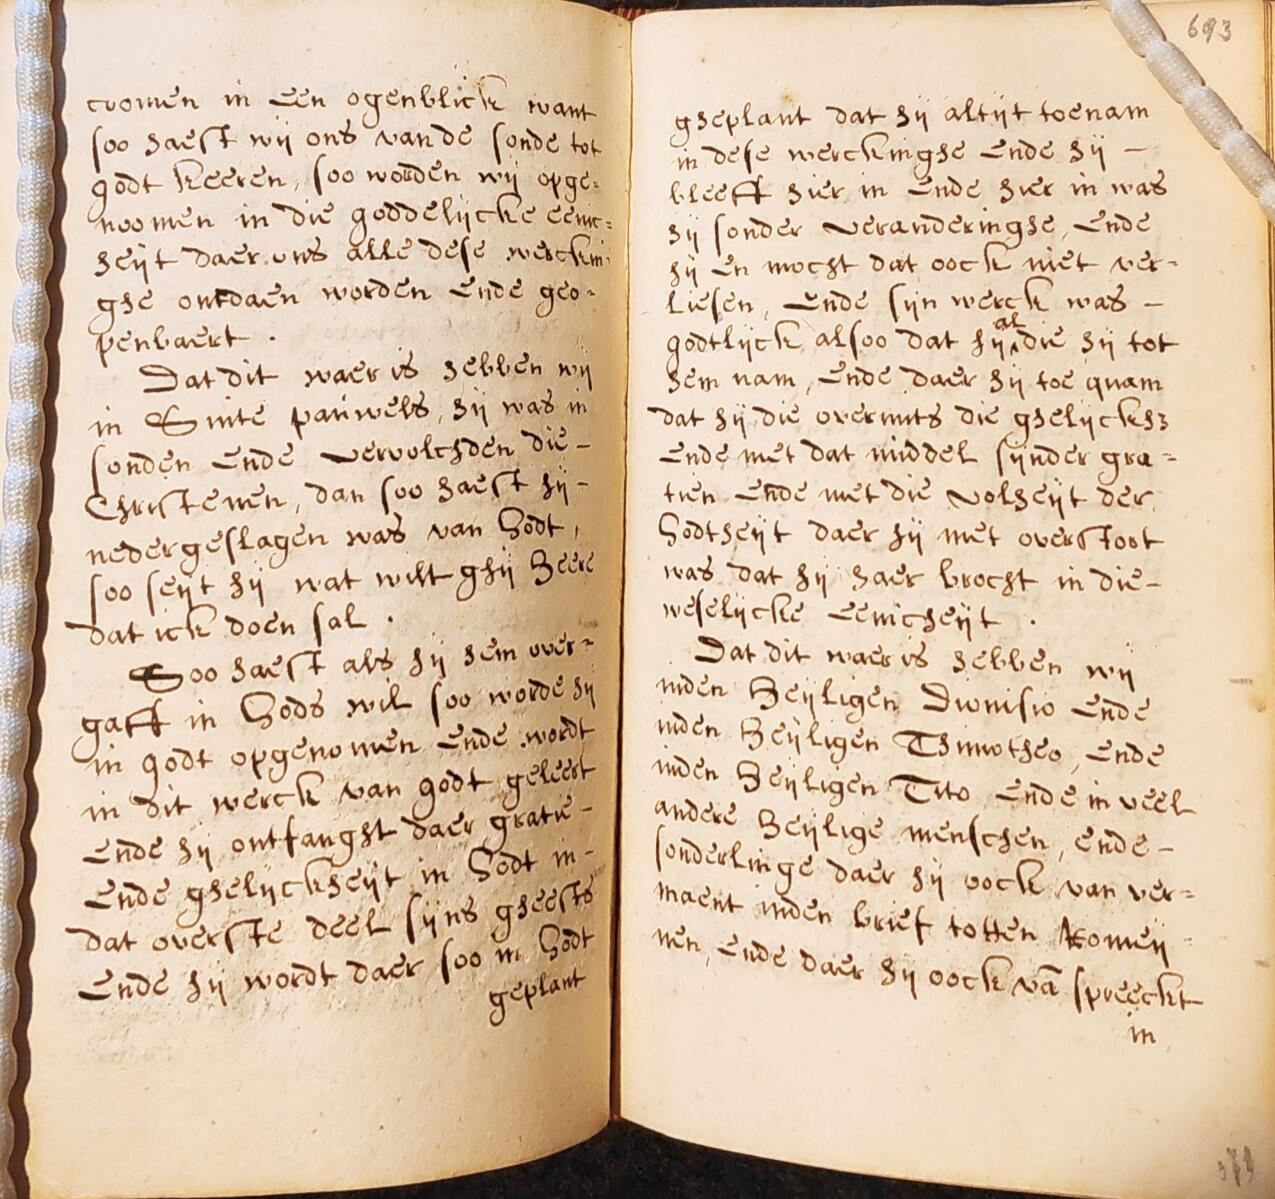 comen in een ogenblick want
soo haest wij ons van de sonde tot
godt keeren, soo worden wij opge-
noomen in die goddelijcke eenic-
heijt daer ons alle dese werckin-
ghe ontdaen worden ende geo-
penbaert .
Dat dit waer is hebben wij
in Sinte pauwels, hij was in
sonden ende vervolchden die-
Christenen, dan soo haest hij-
nedergeslagen was van Godt,
soo seijt hij wat wilt ghij Heere
dat ick doen sal .
Soo haest als hij hem over-
gaff in Gods wil soo worde hij
in godt opgenomen ende wordt
in dit werck van godt geleert
ende hij ontfanght daer gratie-
ende ghelijckheijt in Godt in-
dat overste deel sijns gheests
ende hij wordt daer soo in Godt
geplant
693
gheplant dat hij altijt toenam
in dese werckinghe ende hij -
bleeff hier in ende hier in was
hij sonder veranderinghe, ende
hij en mocht dat oock niet ver-
liesen, ende sijn werck was -
godtlijck, alsoo dat hij al die hij tot
hem nam, ende daer hij toe quam
dat hij die overmits die ghelijckh3
ende met dat middel sijnder gra-
tien ende met die volheijt der
Godtheijt daer hij met overstoot
was dat hij haer brocht in die-
weselijcke eenicheijt .
Dat dit waer is hebben wij
inden Heijligen Dionisio ende
inden Heijligen Thimotheo, ende
inden Heijligen Tito ende in veel
andere Heijlige menschen, ende-
sonderlinge daer hij oock van ver-
maent inden brief totten Romeij-
nen, ende daer hij oock vā spreeckt
in